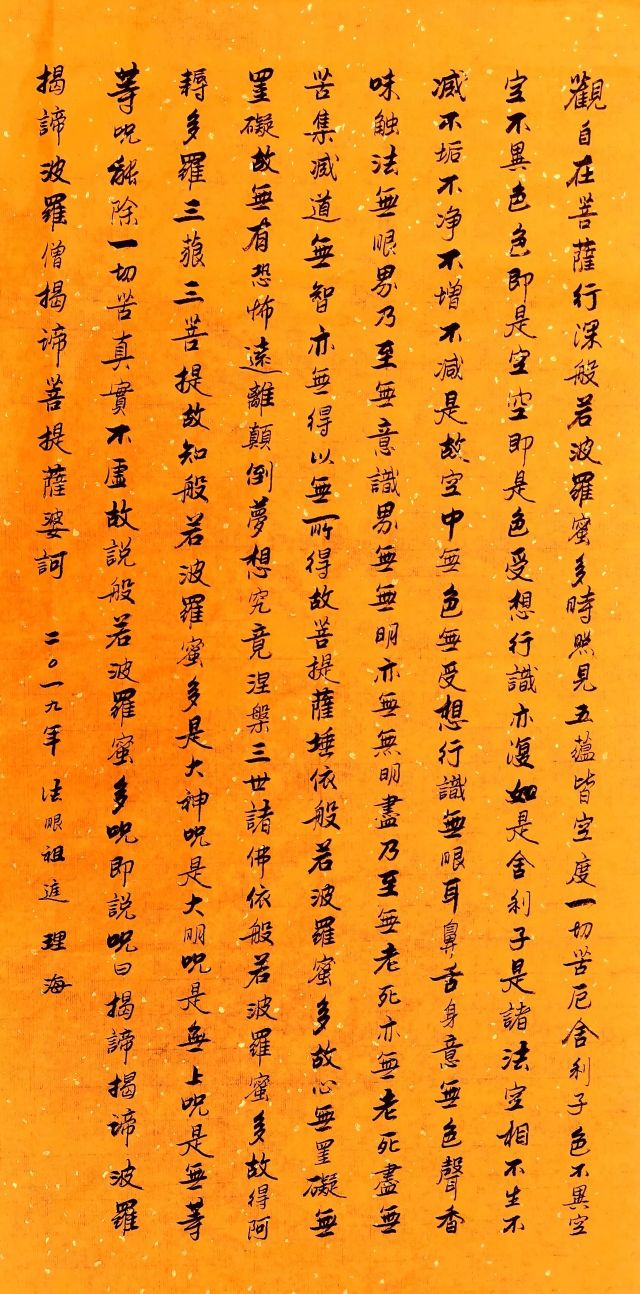 觀自在菩薩行深般若波羅蜜多時照見五蘊皆空度一切苦厄舍利子色不異空
空不異色色即是空空即是色受想行識亦復如是舍利子是諸法空相不生不
減不垢不净不增不减是故空中無色無受想行識無眼耳鼻舌身意無色聲香
味触法無眼界乃至無意識界無無明亦無無明盡乃至無老死亦無老死盡無
苦集减道無智亦無得以無所得故菩提薩埵依般若波羅蜜多故心無罣礙無
罣礙故無有恐怖遠離顛倒夢想究竟涅槃三世諸佛依般若波羅蜜多故得阿
耨多羅三藐三菩提故知般若波羅蜜多是大神咒是大明咒是無上咒是無等
等咒能除一切苦真實不虛故説般若波羅蜜多咒即説咒曰揭諦揭諦波羅
揭諦波羅僧揭諦菩提薩婆訶 二〇一九年 法眼祖庭 理海